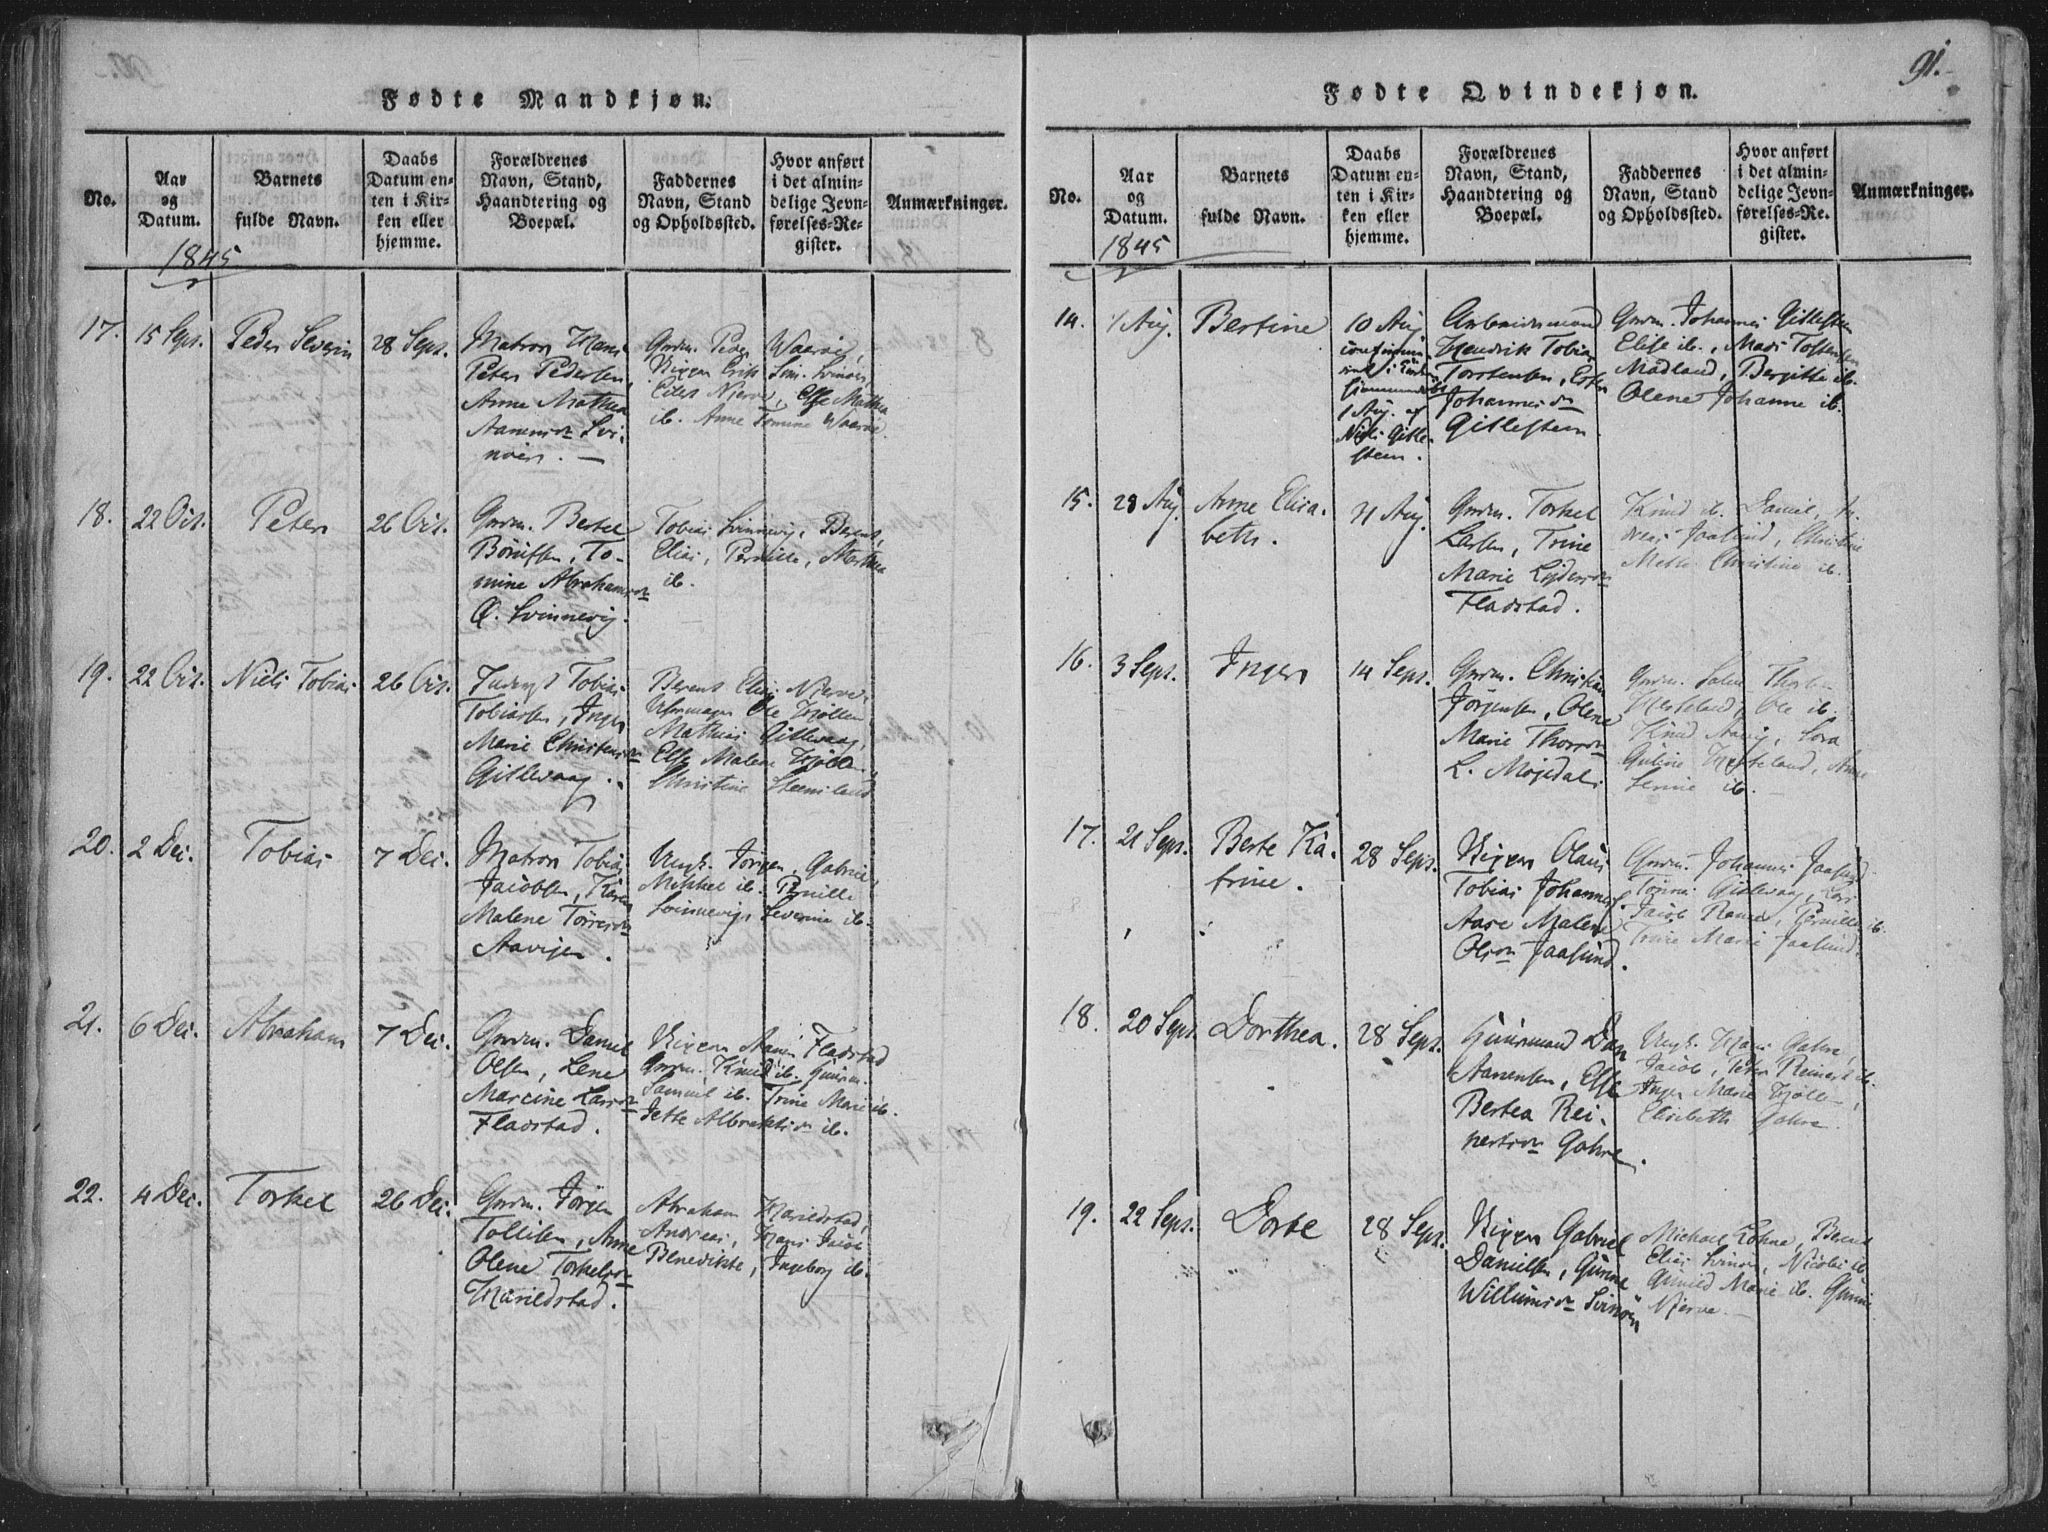 91.
Fødte Mandkjøn.
No.
Aar
og
Datum.
Barnets
fulde Navn.
Daabs
Datum en-
ten i Kir-
ken eller
hjemme.
Forældrenes
Navn, Stand,
Haandtering og
Boepæl.
Faddernes
Navn, Stand
og Opholdssted.
Hvor anført
i det almin-
delige Jevn-
førelses-Re-
gister.
Anmærkninger.
1845
17.
15 Sept.
Peder Severin
28 Sept.
Matros Hans
Peter Pedersen,
Anne Mathea
Svi-
nøer.
Gmdm. Peder Waarøe,
Erik Svinøer,
Njerve, Else Mathea
ib. Anne Tomine Waarøe.
18.
22 Oct.
Peter
26 Oct.
Gmdm. Bertel
To-
mine Abrahams
Ø. Svinnevig.
Tobias Svinnevig, Berent,
Elias, Pernille, Marthea
ib.
19.
22 Oct.
Niels Tobias
26 Oct.
Tobias
Tobiassen, Inger
Marie
Gitlevaag.
Berent Elias Njerve,
Ole
Mathias Gitlevaag,
Else Malene
Christine
20.
2 Dec.
Tobias
7 Dec.
Matros Tobias
Jacobsen, Karen
Malene
Aavigen.
Ungk. Jørgen, Gabriel,
Mikkel ib. Pernille
Svinnevig, Severine ib.
21.
6 Dec.
Abraham
7 Dec.
Gmdm. Daniel
Olsen, Lene
Marcine
Fladstad.
Fladstad
Gmdm. Knud ib.
Samuel ib. Trine Marie ib.
Jette ib.
22.
4 Dec.
Torkel
26 Dec.
Gmdm. Jørgen
Tollisen, Anne
Olene
Harildstad.
Abraham Harildstad,
Andreas, Hans Jacob
Benedikte, Ingeborg ib.
Fødte Qvindekjøn.
No.
Aar
og
Datum.
Barnets
fulde Navn.
Daabs
Datum en-
ten i Kir-
ken eller
hjemme.
Forældrenes
Navn, Stand,
Haandtering og
Boepæl.
Faddernes
Navn, Stand
og Opholdssted.
Hvor anført
i det almin-
delige Jevn-
førelses-Re-
gister.
Anmærkninger.
1845
14.
1 Aug.
Bertine
10 Aug.
1 Aug. af
Niels Gitle-
steen.
Arbeidsmand
Hendrik Tobias
Torstensen, Ester
Johannes
Gitlesteen
Gmdm. Johannes Gitlesteen
Elise ib.
Madland, Bergitte ib.
Olene Johanne ib.
15.
28 Aug.
Anne Elisa-
beth.
31 Aug.
Gmdm. Torkel
Larsen, Trine
Marie
Fladstad.
Knud ib. Daniel,
Jaasund, Christine
Mette Christine ib.
16.
3 Sept.
Inger
14 Sept.
Gmdm. Christian
Jørgensen, Olene
Marie
L. Møgedal
Gmdm.
Hesteland, Ole ib.
Knud
Guline Hesteland, Anne
Serine ib.
17.
21 Sept.
Berte Ka-
trine.
28 Sept.
Olaus
Tobias Johannes
Aase Malene
Jaasund.
Gmdm. Johannes Jaasund
Gitlevaag,
Jacob Pernille ib.
Trine Marie Jaasund.
18.
20 Sept.
Dorthea.
28 Sept.
Huusmand Dan
Aanensen, Else
Bertea Rei-
Gahre.
Ungk. Hans Gahre,
Jacob, Peter Reinert ib.
Inger Marie
Elisabeth Gahre.
19.
22 Sept.
Dorte
28 Sept.
Gabriel
Danielsen, Gurine
Svinøer
Michael Lohne, Berent
Elias Svinøer, Nicolai ib.
Gunild Marie ib. Gurine
Njerve.